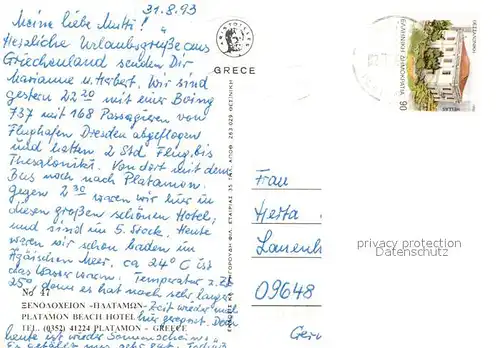 31.8.93
Meine liebe Mutti!
Herzliche Urlaubsgrüße aus
Griechenland senden Dir
Marianne u. Herbert. Wir sind
gestern 22 30 mit einer Boing
737 mit 168 Passagieren vom
Flughafen Dresden abgeflogen
und hatten 2 Std. Flug bis
Thesaloniki. Von dort mit dem
Bus noch nach Platamon.
gegen 2 30 waren wir hier in
diesem großen schönen Hotel,
und sind im 5. Stock. Heute
waren wir schon baden im
Ägäischen Meer, ca 24°C ist
das Wasser warm. Temperatur z.Zt.
25° denn es hat nach sehr langer
Zeit wieder mal
hier geregnet. Doch
heute ist wieder Sonnenschein.
Es gefällt uns sehr gut.
No 47
ΞΕΝΟΔΟΧΕΙΟΝ «ΠΛΑΤΑΜΩΝ»
PLATAMON BEACH HOTEL
TEL. (0352) 41224 PLATAMON - GREECE
ΑΡΙΣΤΟΤΕΛΗΣ
GRECE
ΕΛΛΗΝΙΚΗ ΔΗΜΟΚΡΑΤΙΑ
90
HELLAS
Frau
Herta
09648
privacy protection
Datenschutz